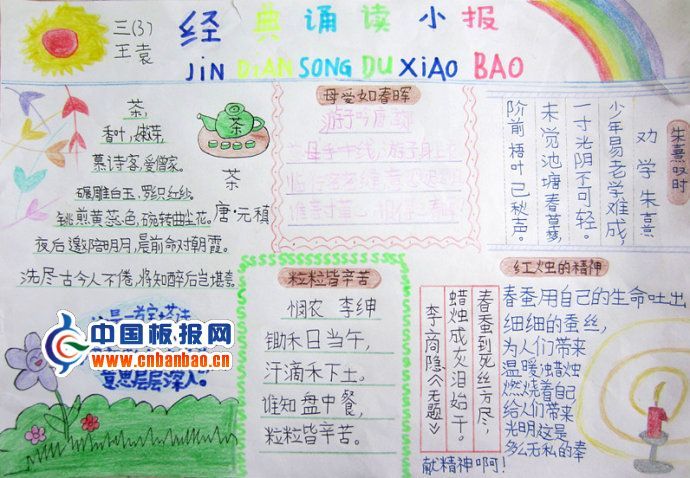 三(3)
王袁
经典诵读小报
JiN DiAN SONG DU XiAO BAO
茶,
香叶,嫩芽,
慕诗客,爱僧家。
碾雕白玉,罗织红纱。
铫煎黄蕊色,碗转曲尘花。
夜后邀陪明月,晨前命对朝霞。
洗尽古今人不倦,将知醉后岂堪夸。
茶
茶
唐·元稹
意思层层深入。
中国板报网
www.cnbanbao.cn
母爱如春晖
游子吟 唐
母手中线,游子身上
粒粒皆辛苦
悯农 李绅
锄禾日当午,
汗滴禾下土。
谁知盘中餐,
粒粒皆辛苦。
朱熹叹时
劝学 朱熹
少年易老学难成,
一寸光阴不可轻。
未觉池塘春草梦,
阶前梧叶已秋声。
红烛的精神
春蚕到死丝方尽,
蜡烛成灰泪始干。
李商隐《无题》
春蚕用自己的生命吐出
细细的蚕丝,
为人们带来
温暖蜡烛
燃烧着自己
给人们带来
光明这是
多么无私的奉
献精神啊!